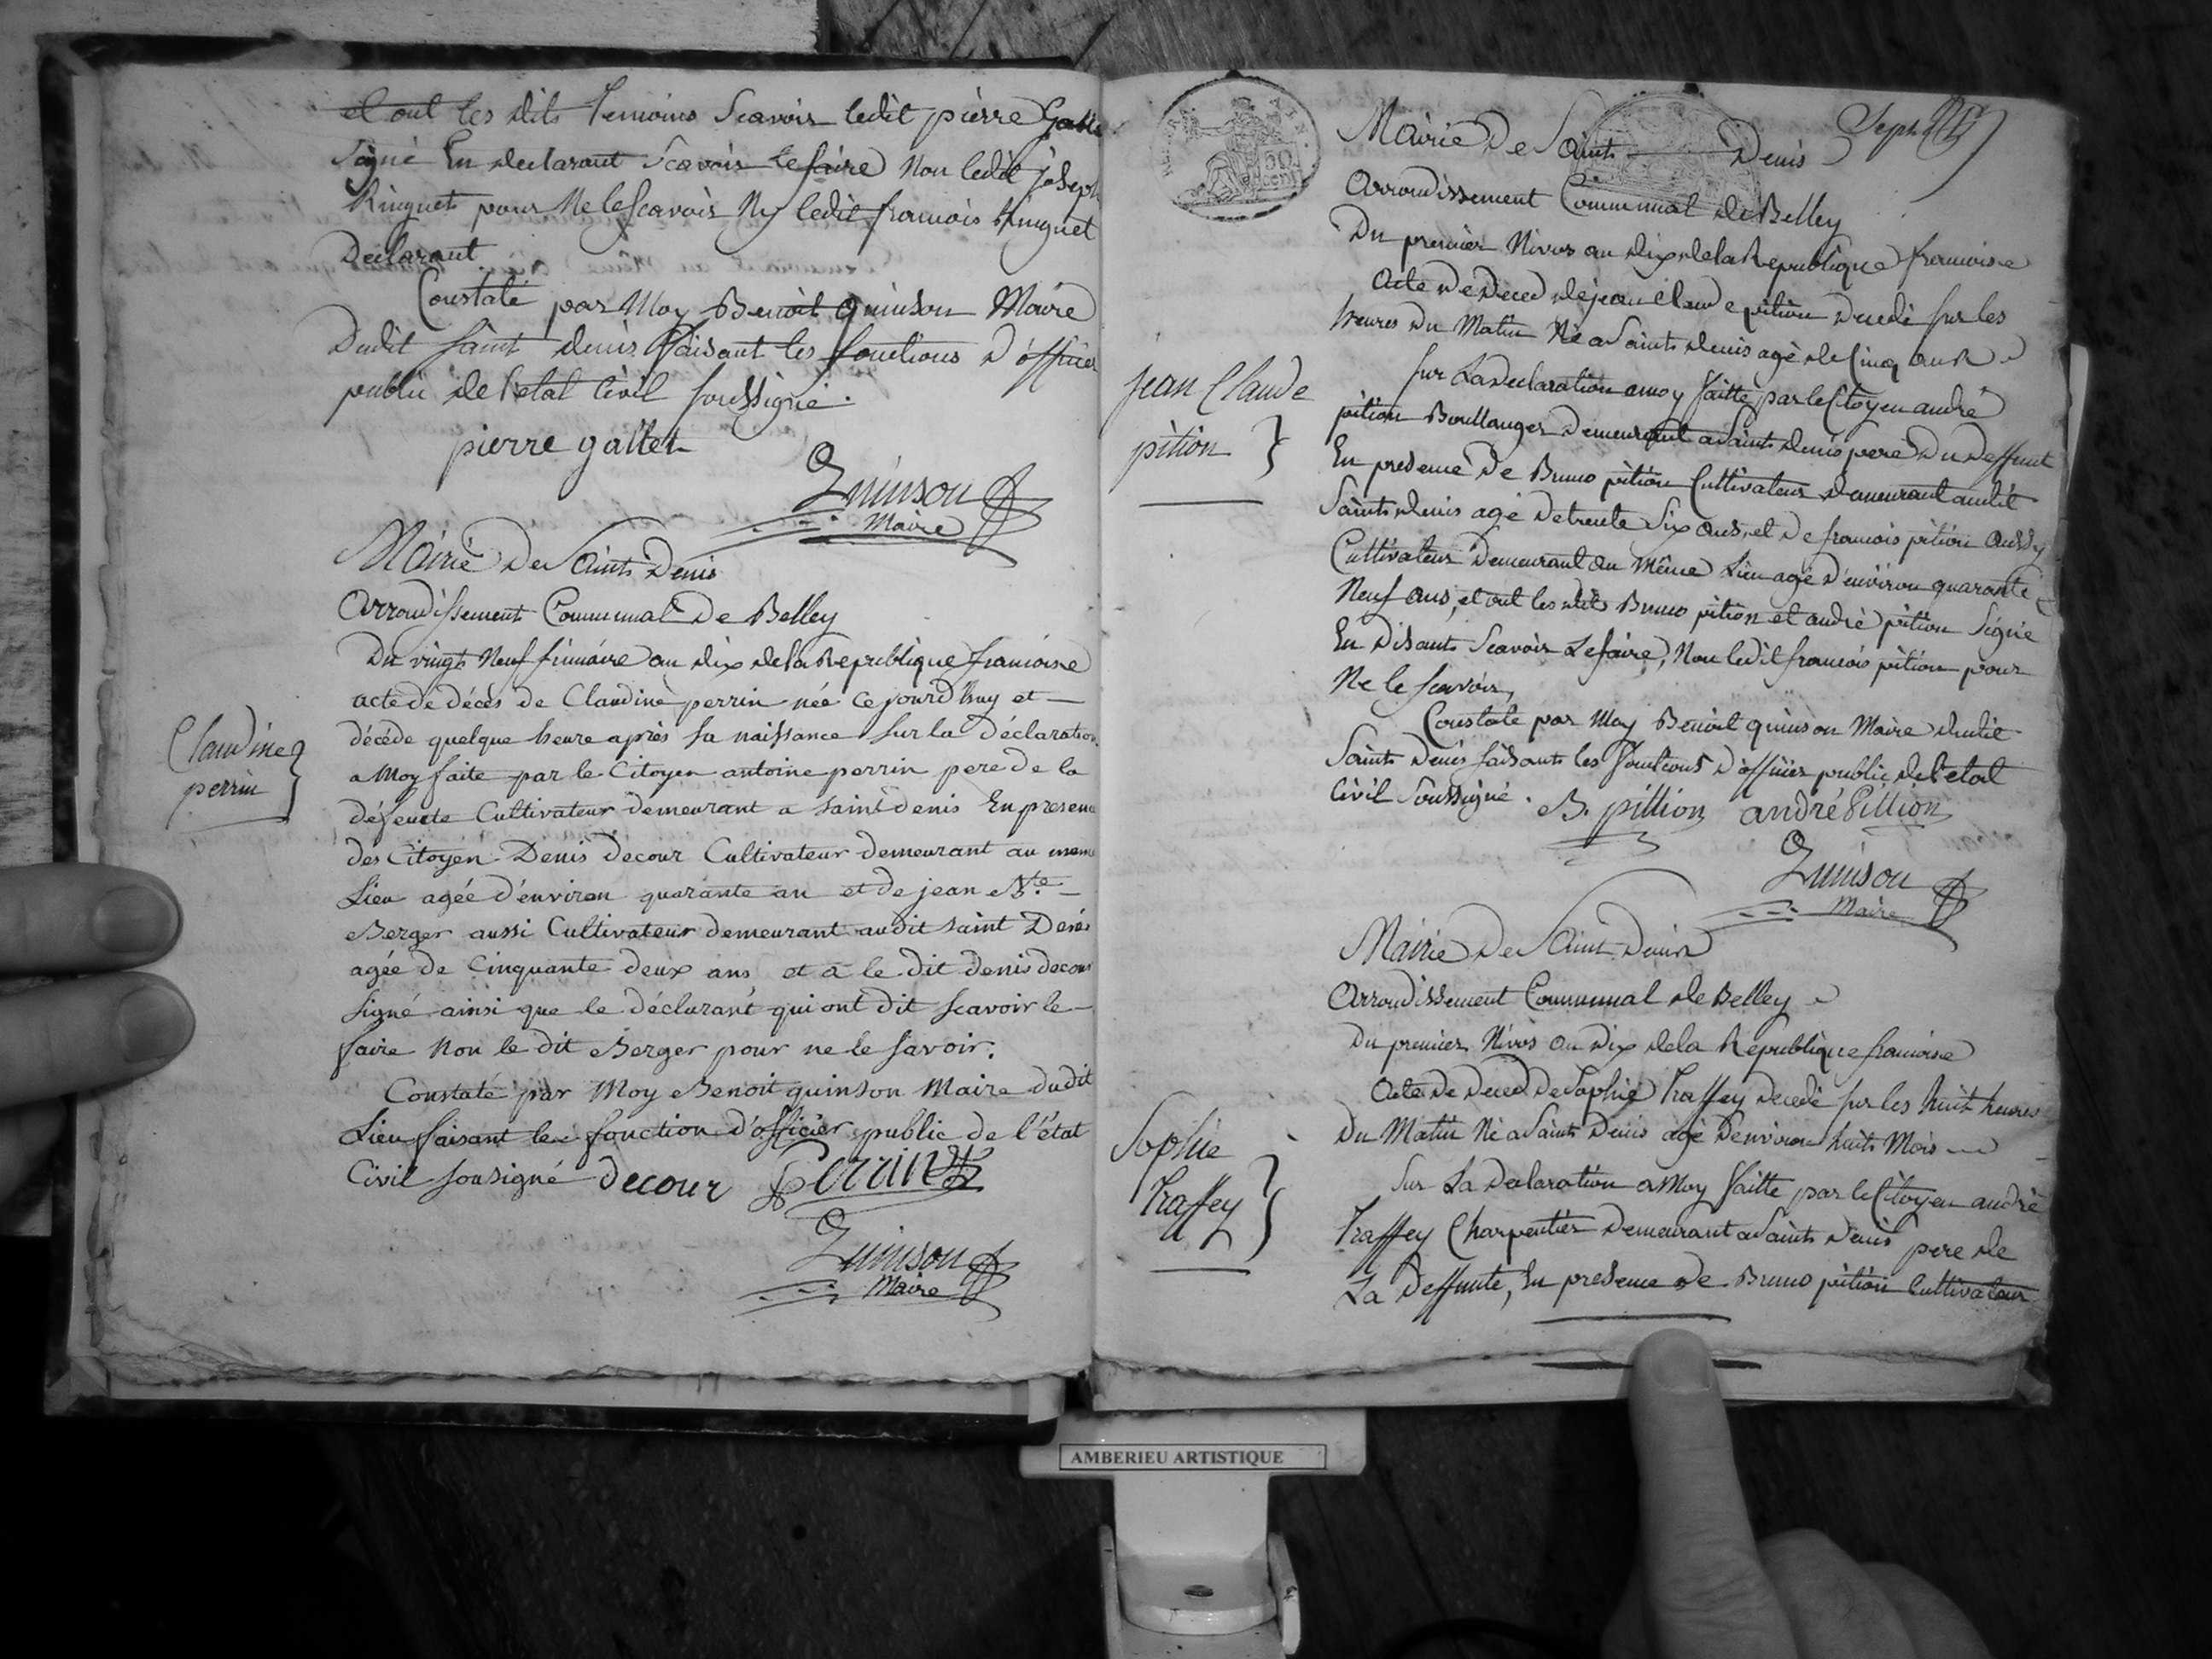 et ont les dits temoins Scavoir ledit pierre Galle
Signé En declarant Scavoir le faire Non ledit joseph
Ringuet pour Ne le Scavoir Ny ledit francois Ringuet
Declarant
Constaté par Moy Benoit quinson Maire
Dudit Saint denis faisant les fonctions d'officier
public de l'etat Civil Soussigné.
pierre gallet
Quinson
Maire
Mairie De Saint Denis
Arrondissement Communal De Belley
Du vingt Neuf frimaire an dix de la Republique francoise
acte de décès de Claudine perrin née ce jourd'huy et
décède quelque heure après sa naissance sur la déclaration
a Moy faite par le Citoyen antoine perrin pere de la
Claudine
perrin
défeute Cultivateur demeurant a saint denis En presence
des Citoyen Denis decour Cultivateur demeurant au meme
Lieu agée d'environ quarante an et de jean Bte
Berger aussi Cultivateur demeurant audit saint Denis
agée de Cinquante deux ans et a le dit denis decour
signé ainsi que le déclarant qui ont dit scavoir le
faire Non le dit Berger pour ne le savoir.
Constaté par Moy Benoit quinson Maire dudit
Lieu faisant les fonction d'officier public de l'état
Civil sousigné decour Perrin
Quinson
Maire
Mairie De Saint Denis
Arrondissement Communal de Belley
Du premier Nivos an dix de la Republique francoise
Acte de Deced de jean Claude pition decedé sur les
heures du Matin Né a Saint denis agé de Cinq ans
jean Claude
pition
Sur La Declaration a moy faitte par le Citoyen andré
pition Boullanger demeurant a Saint denis pere Du deffunt
En presence De Bruno pition Cultivateur demeurant audit
Saint denis agé de trente Six ans, et De francois pition aussy
Cultivateur Demeurant au Même Lieu agé d'environ quarante
Neuf ans, et ont les dits Bruno pition et andré pition Signé
En Disant Scavoir Le faire, Non ledit francois pition pour
Ne le scavoir,
Constaté par Moy Benoit quinson Maire dudit
Saint Denis faisant les fonctions d'officier public de l'etat
Civil Soussigné. B. pittion andré Pittion
Quinson
Maire
Mairie De Saint Denis
Arrondissement Communal de Belley
Du premier Nivos an Dix de la Republique francoise
Acte de Deced De Sophie Traffey decedé sur les huit heures
Du Matin Né a Saint Denis agé d'environ huit Mois
Sophie
Traffey
Sur La Declaration a Moy faitte par le Citoyen andré
Traffey Charpentier demeurant a Saint Denis pere de
La Deffunte, En presence de Bruno pition Cultivateur
AMBERIEU ARTISTIQUE